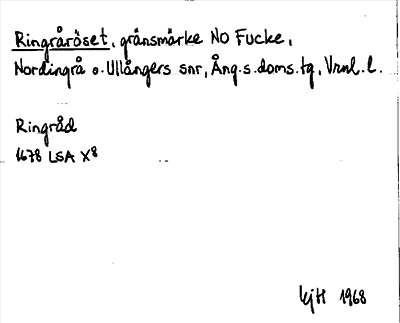 Ringråröset, gränsmärke NO Fucke,
Nordingrå o. Ullångers snr, Ång. s. doms. tg, Vrnl. l.
Ringråd
1678 LSA X8
kjH 1968